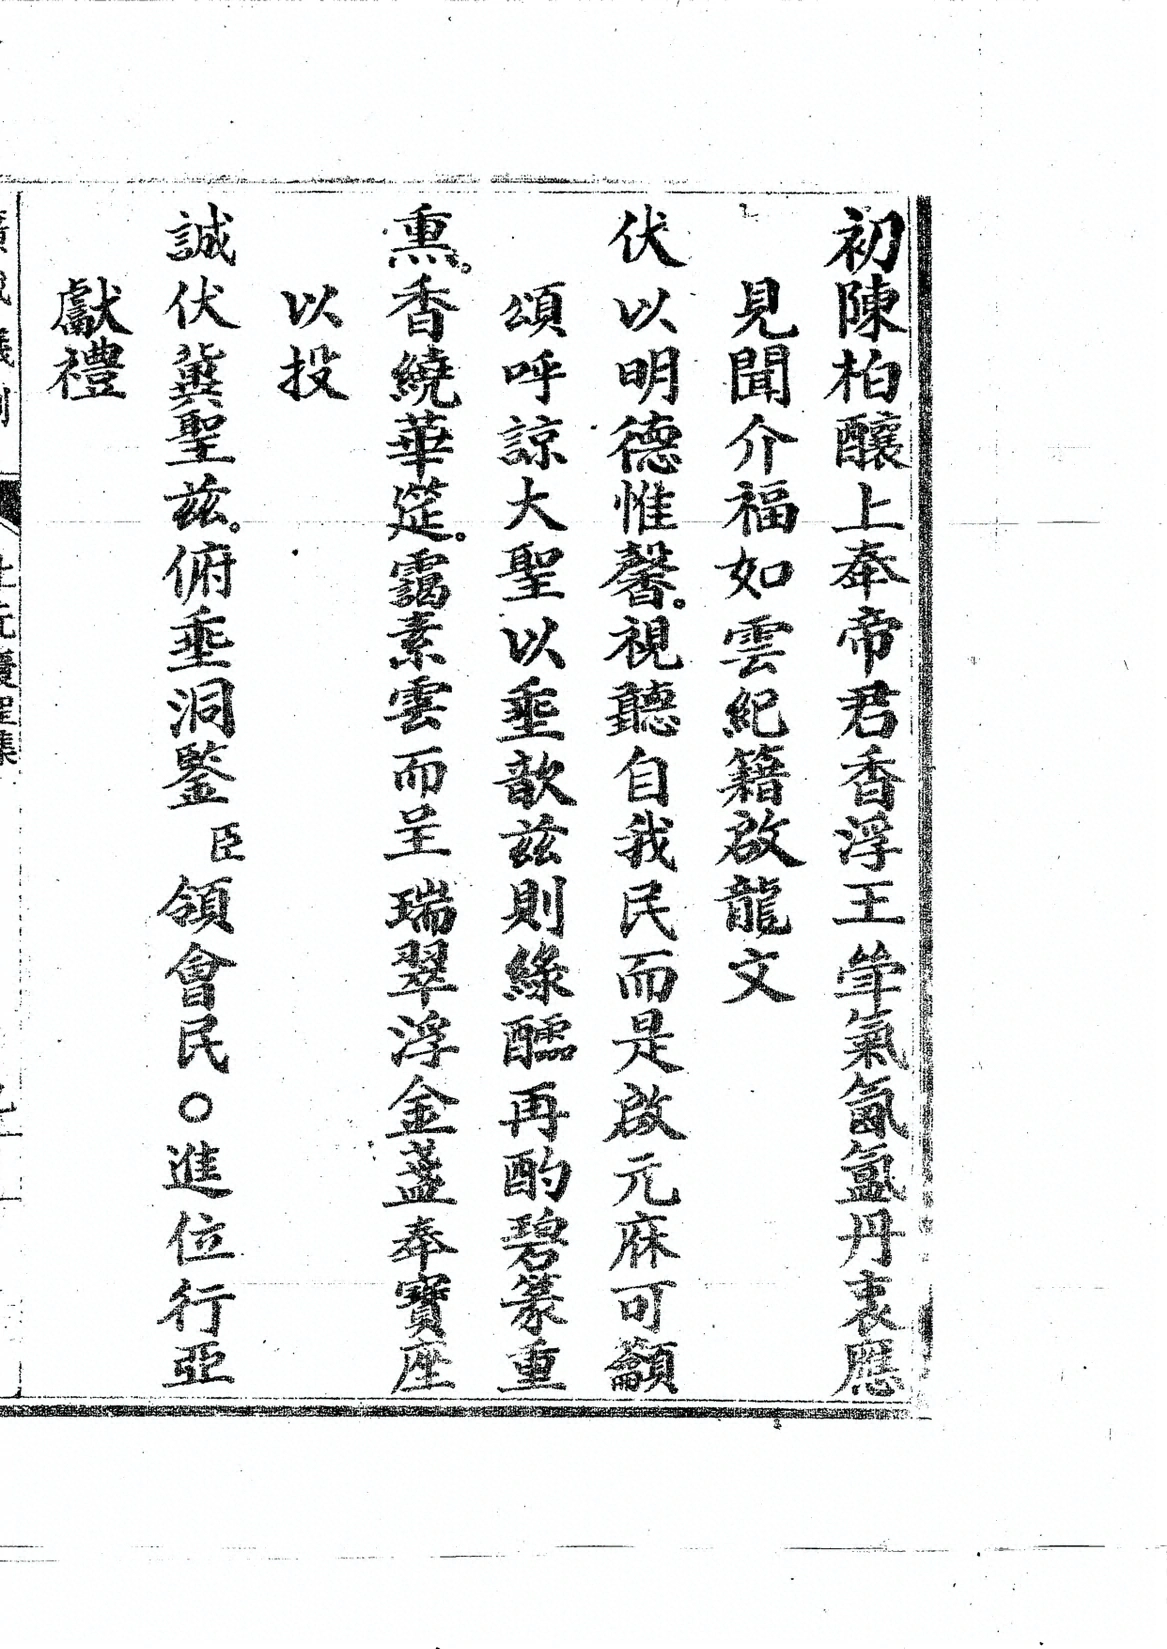 初陳柏釀上奉帝君香浮王斝氣氤氳丹衷應
見聞介福如雲紀籍啟龍文
伏以明德惟馨。視聽自我民而是啟元庥可籲
頌呼諒大聖以垂歆兹則綠醽再酌碧篆重
熏。香繞華筵。靄素雲而呈瑞翠浮金盞奉寶座
以投
誠伏冀聖兹。俯垂洞鑒臣領會民○進位行亞
獻禮